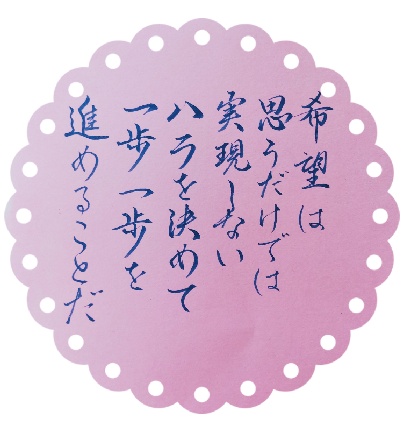 希望は
思うだけでは
実現しない
ハラを決めて
一歩一歩を
進めることだ